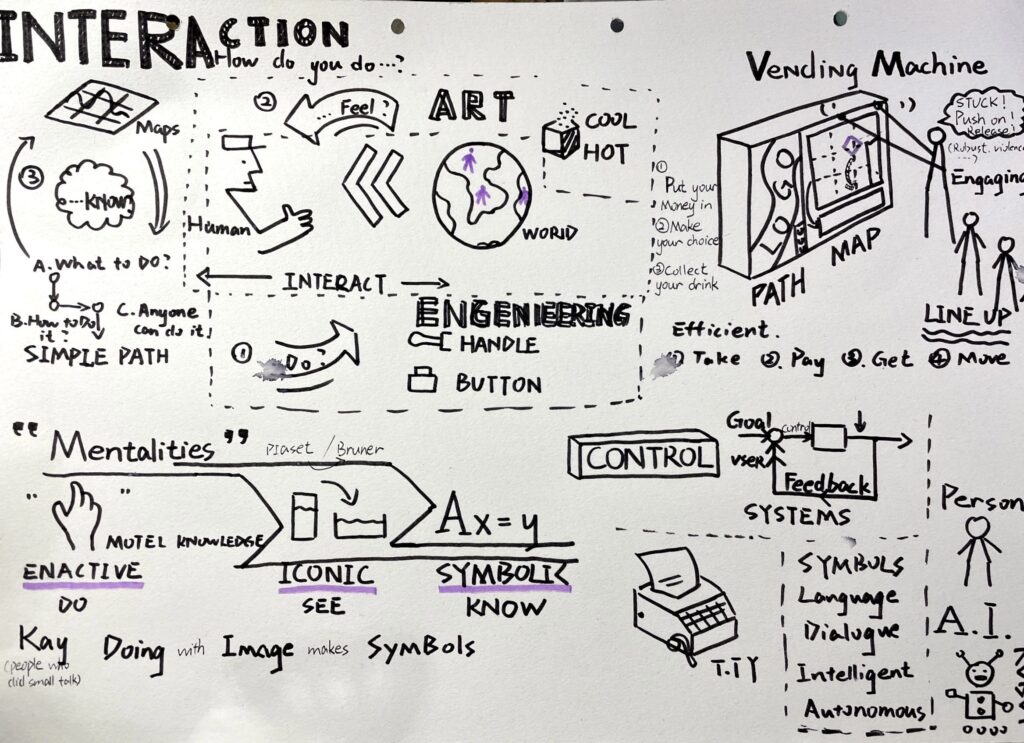 INTERACTION
How do you do...?
Maps
③
...KNOW
A. What to DO?
B. How to Do
it?
C. Anyone
can do it.
SIMPLE PATH
②
Feel?
ART
COOL
HOT
Human
WORLD
INTERACT
ENGENIEERING
①
Do?
HANDLE
BUTTON
Vending Machine
STUCK!
Push on!
Release!
(Robust. violence
....)
Engaging
①
Put your
Money in
② Make
your choice
③ Collect
your drink
LOGO
PATH
MAP
LINE UP
Efficient.
① Take ②. Pay ③. Get ④ Move
"Mentalities"
Piaset / Bruner
" "
MOTEL KNOWLEDGE
Ax=y
ENACTIVE
ICONIC
SYMBOLIC
DO
SEE
KNOW
Kay Doing with Image makes Symbols
(people who
did small talk)
CONTROL
Goal
control
USER
Feedback
SYSTEMS
T.TY
SYMBOLS
Language
Dialogue
Intelligent
Autonomous
Person
A.I.